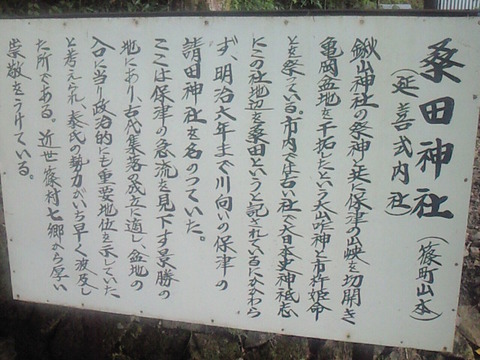 桑田神社(篠町山本)
(延喜式内社)
鍬山神社の祭神と共に保津の山峡を切開き
亀岡盆地を干拓したという大山咋神と市杵姫命
とを祭っている。市内では古い社で大日本史神祗志
にこの社地辺を桑田というと記されているにかかわら
ず、明治六年まで川向いの保津の
請田神社を名のっていた。
ここは保津の急流を見下す景勝の
地にあり古代集落の成立に適し、盆地の
入口に当り政治的にも重要地位を示していた
と考えられ、秦氏の勢力がいち早く波及し
た所である。近世篠村七郷から厚い
崇敬をうけている。